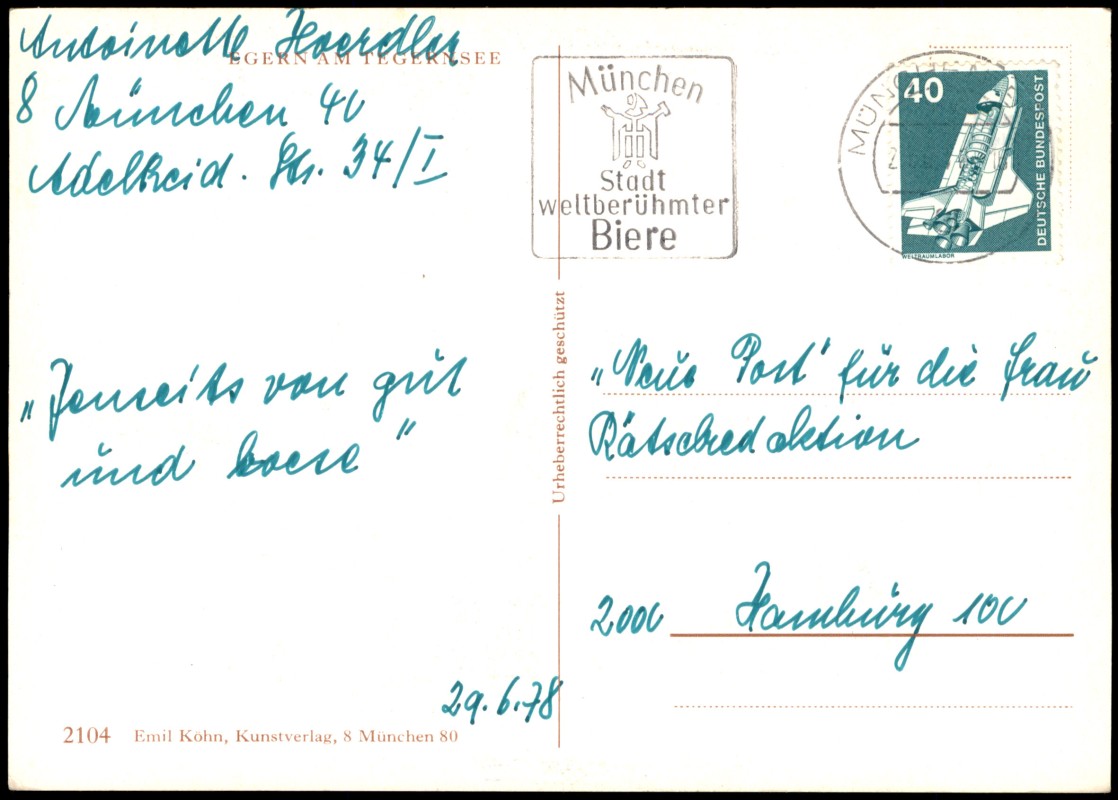 Antoinette Hoerdler
EGERN AM TEGERNSEE
8 München 40
Adelheid. Str. 34/I
München
Stadt
weltberühmter
Biere
MÜNCHEN
40
DEUTSCHE BUNDESPOST
WELTRAUMLABOR
„Jenseits von gut
und boese"
Urheberrechtlich geschützt
„Neue Post" für die Frau
Rätselredaktion
2000 Hamburg 100
29.6.78
2104 Emil Köhn, Kunstverlag, 8 München 80